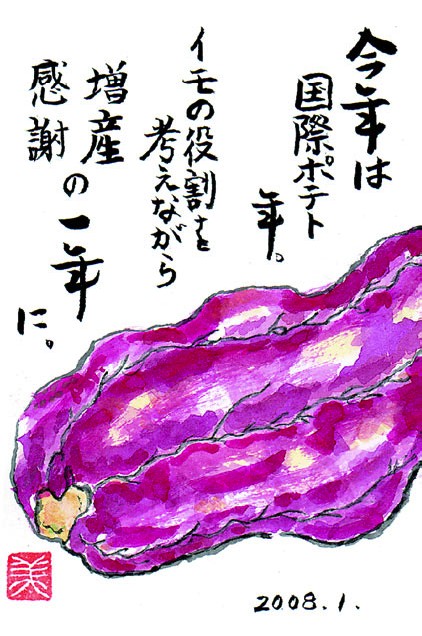 今年は
国際ポテト
年。
イモの役割を
考えながら
増産
感謝の一年
に。
美
2008.1.